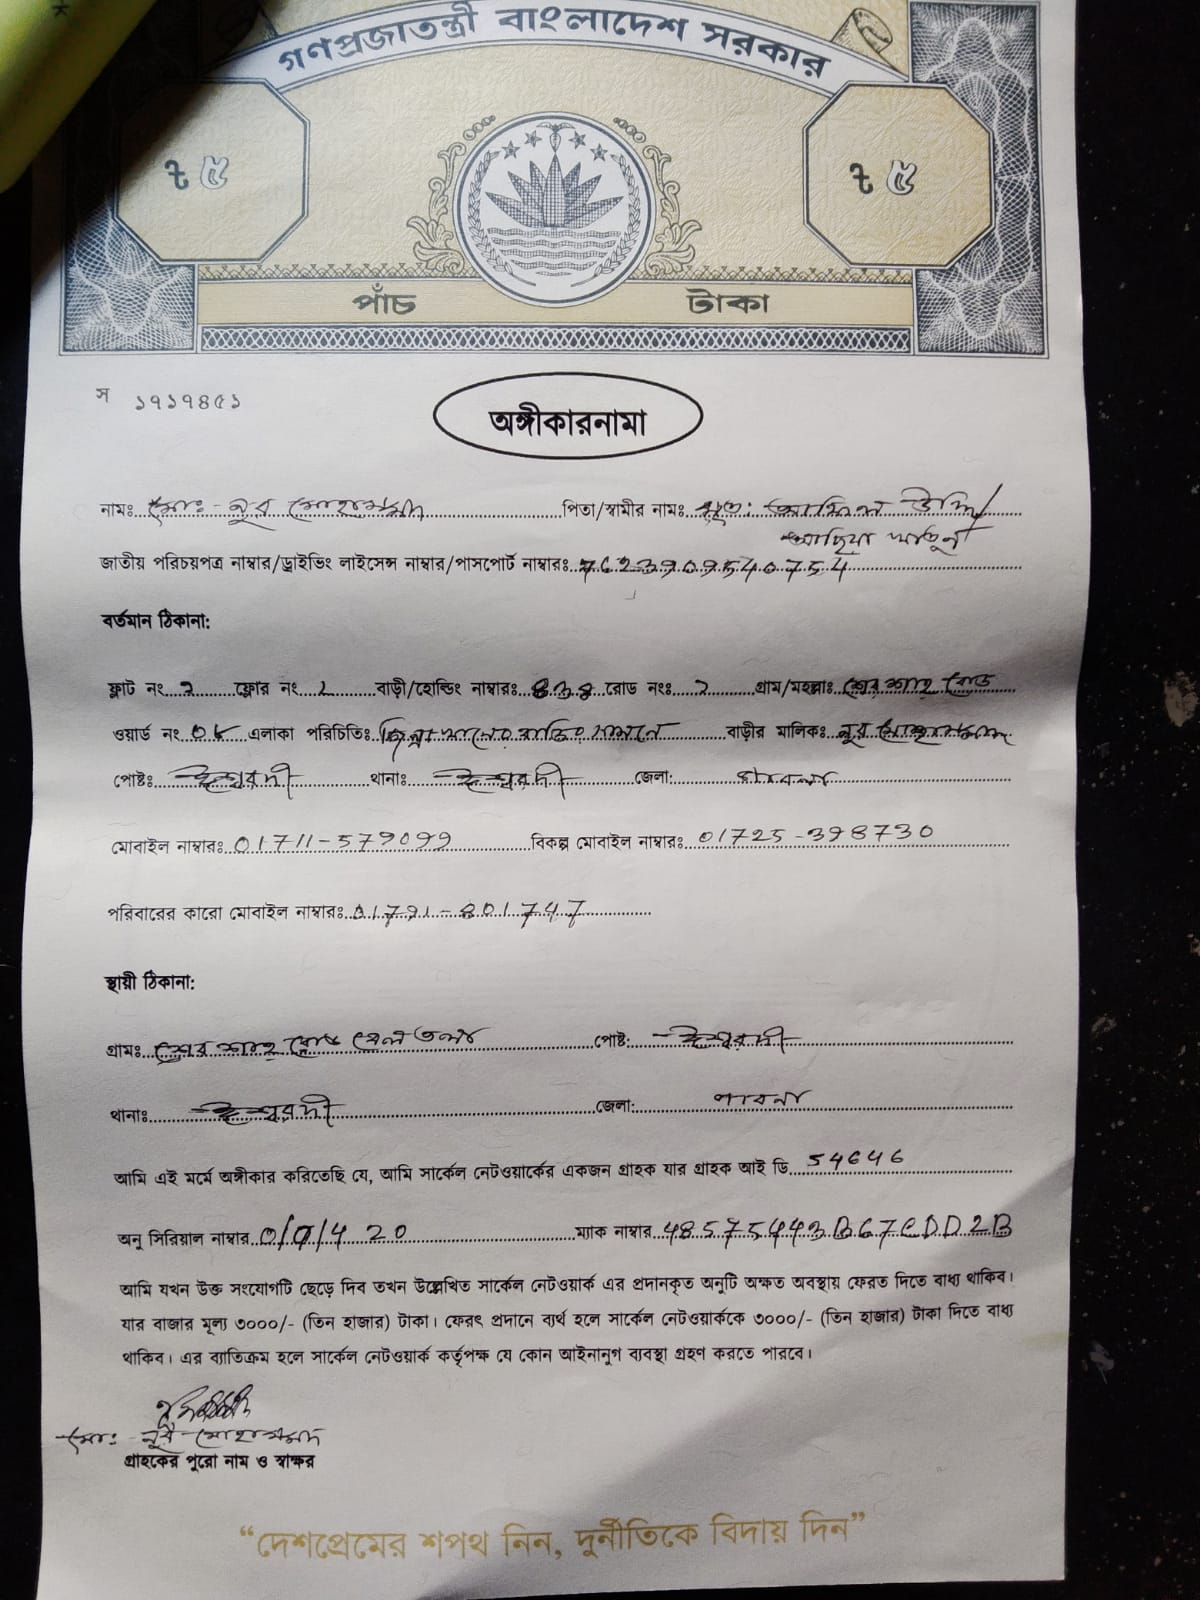 গণপ্রজাতন্ত্রী বাংলাদেশ সরকার
৳ ৫ ৳ ৫
পাঁচ টাকা
স ১৭১৭৪৫১
অঙ্গীকারনামা
নামঃ মোঃ- নুর মোহাম্মদ পিতা/স্বামীর নামঃ মৃতঃ উদ্দিন/
আছিয়া খাতুন
জাতীয় পরিচয়পত্র নাম্বার/ড্রাইভিং লাইসেন্স নাম্বার/পাসপোর্ট নাম্বারঃ 7623909540754
বর্তমান ঠিকানা:
ফ্লাট নং 2 ফ্লোর নং 2 বাড়ী/হোল্ডিং নাম্বারঃ রোড নংঃ 2 গ্রাম/মহল্লাঃ শের শাহ রোড
ওয়ার্ড নং এলাকা পরিচিতিঃ বাড়ির সামনে বাড়ীর মালিকঃ নুর মোহাম্মদ
পোষ্টঃ ঈশ্বরদী থানাঃ ঈশ্বরদী জেলা: পাবনা
মোবাইল নাম্বারঃ 01711-579099 বিকল্প মোবাইল নাম্বারঃ 01725-398730
পরিবারের কারো মোবাইল নাম্বারঃ 01791-801747
স্থায়ী ঠিকানা:
গ্রামঃ শের শাহ রোড তলা পোষ্ট: ঈশ্বরদী
থানাঃ ঈশ্বরদী জেলা: পাবনা
আমি এই মর্মে অঙ্গীকার করিতেছি যে, আমি সার্কেল নেটওয়ার্কের একজন গ্রাহক যার গ্রাহক আই ডি 54646
অনু সিরিয়াল নাম্বার 0/0/4 20 ম্যাক নাম্বার 48575443B67CDD2B
আমি যখন উক্ত সংযোগটি ছেড়ে দিব তখন উল্লেখিত সার্কেল নেটওয়ার্ক এর প্রদানকৃত অনুটি অক্ষত অবস্থায় ফেরত দিতে বাধ্য থাকিব।
যার বাজার মূল্য ৩০০০/- (তিন হাজার) টাকা। ফেরৎ প্রদানে ব্যর্থ হলে সার্কেল নেটওয়ার্ককে ৩০০০/- (তিন হাজার) টাকা দিতে বাধ্য
থাকিব। এর ব্যাতিক্রম হলে সার্কেল নেটওয়ার্ক কর্তৃপক্ষ যে কোন আইনানুগ ব্যবস্থা গ্রহণ করতে পারবে।
মোঃ নুর মোহাম্মদ
গ্রাহকের পুরো নাম ও স্বাক্ষর
“দেশপ্রেমের শপথ নিন, দুর্নীতিকে বিদায় দিন”